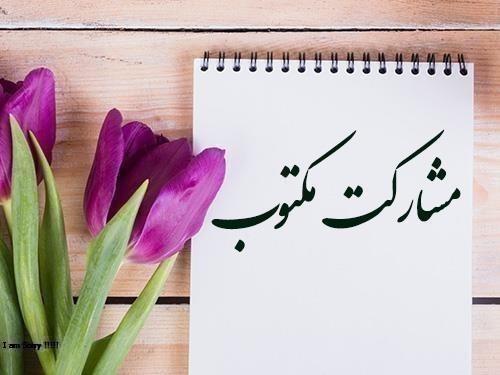 مشارکت مکتوب
I am Sorry !!!!!